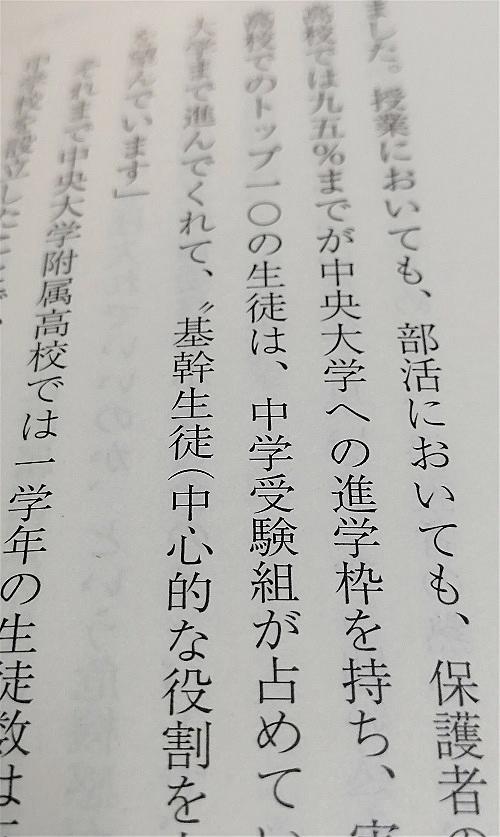 ました。授業においても、部活においても、保護者の
高校では九五％までが中央大学への進学枠を持ち、
高校でのトップ一〇の生徒は、中学受験組が占めてい
大学まで進んでくれて、〝基幹生徒（中心的な役割を
を望んでいます」
それまで中央大学附属高校では一学年の生徒数は
中学校を設立したことで、